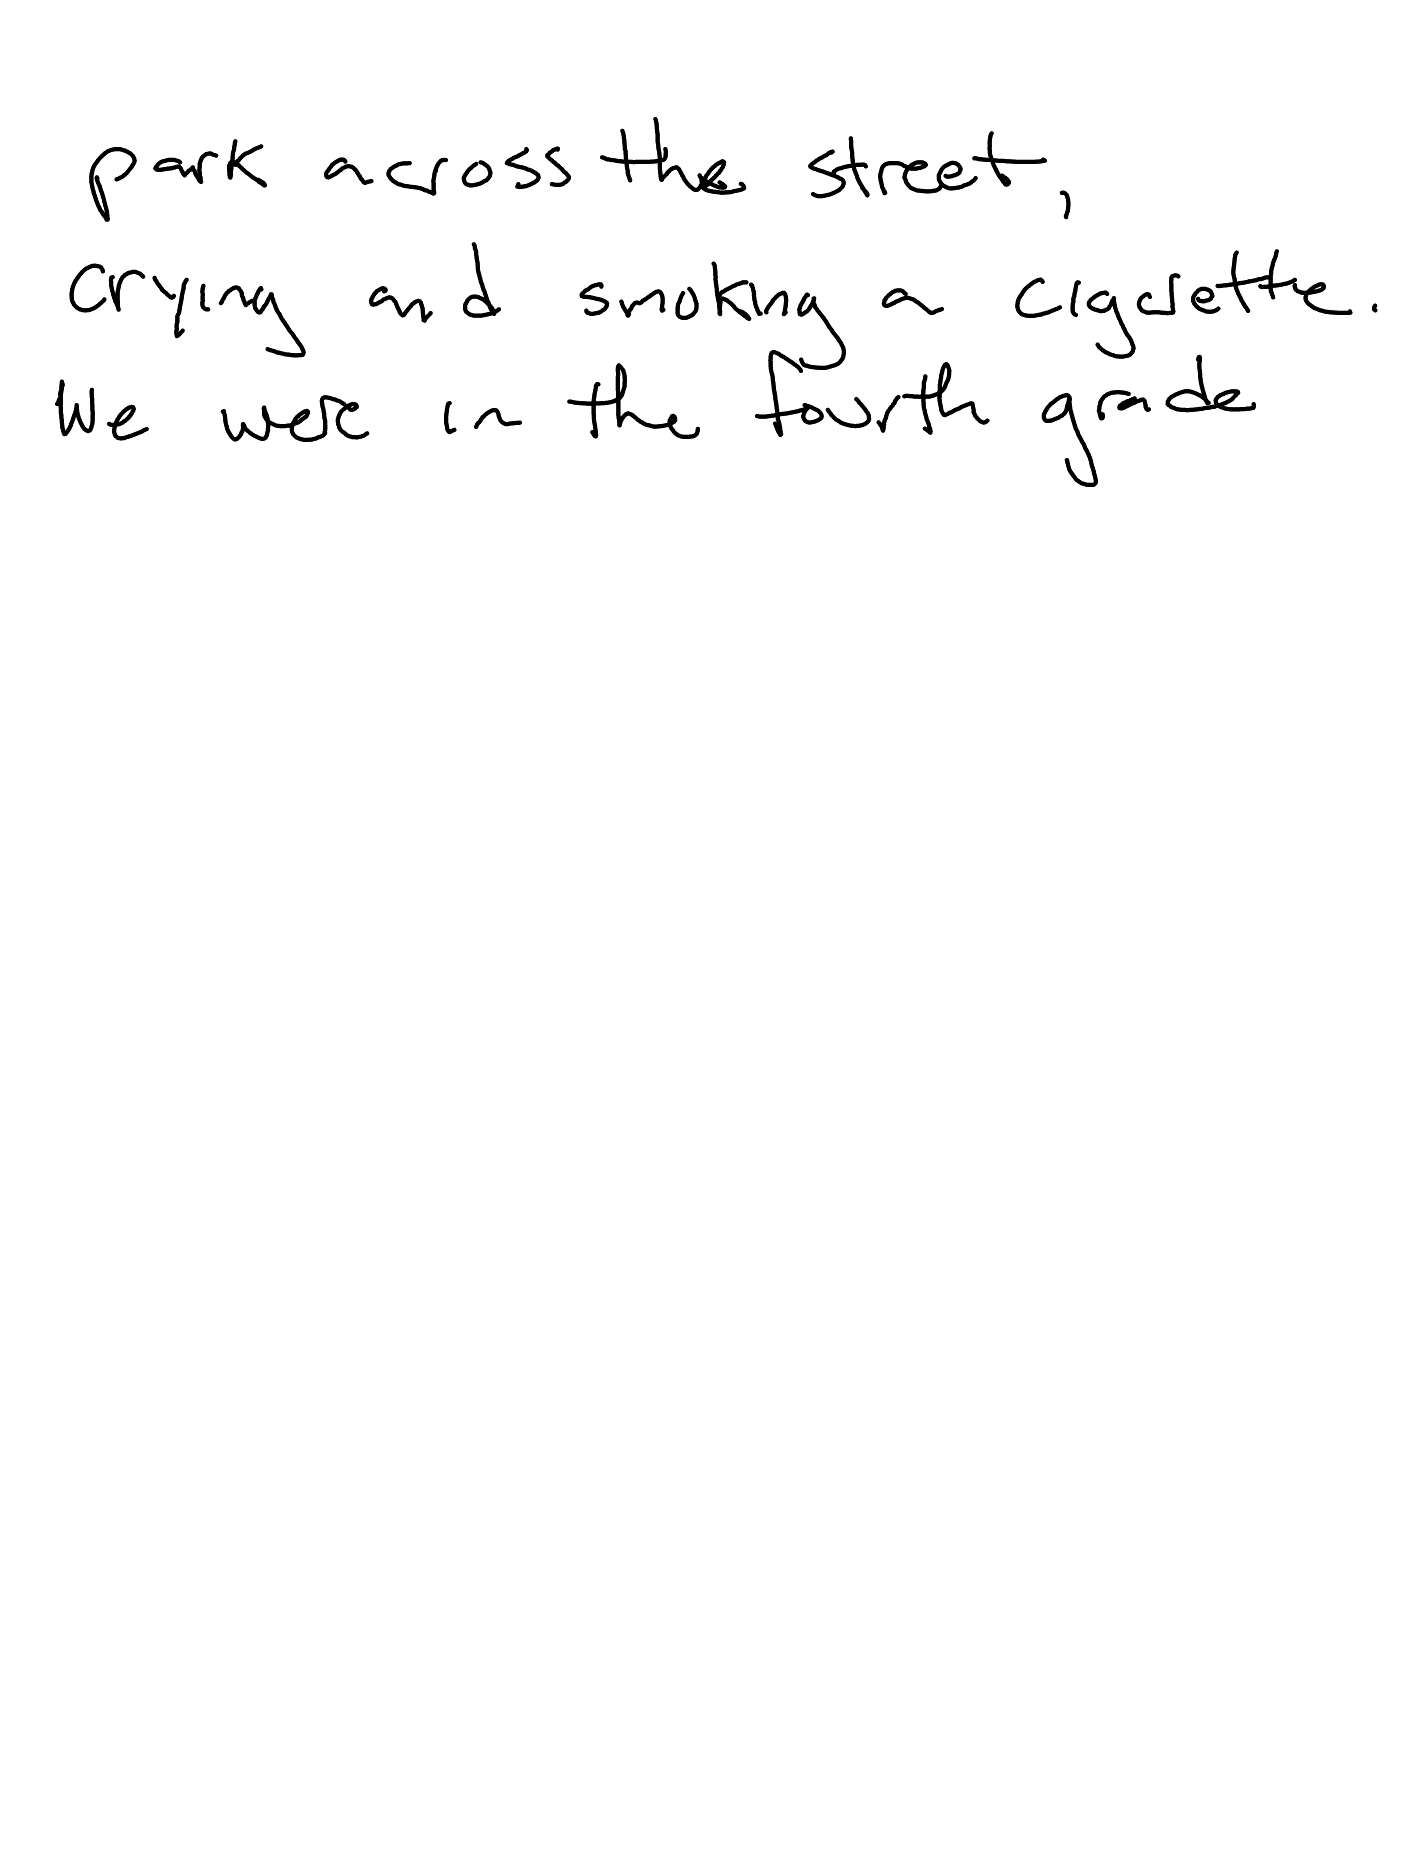 park across the street,
crying and smoking a cigarette.
We were in the fourth grade